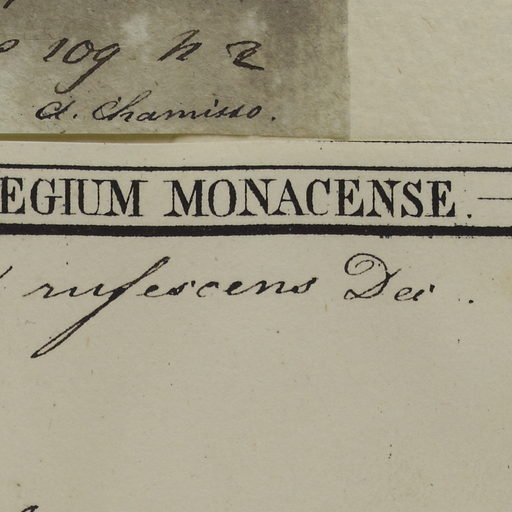 109 n 2
d. Chamisso.
EGIUM MONACENSE.
rufescens Dec.